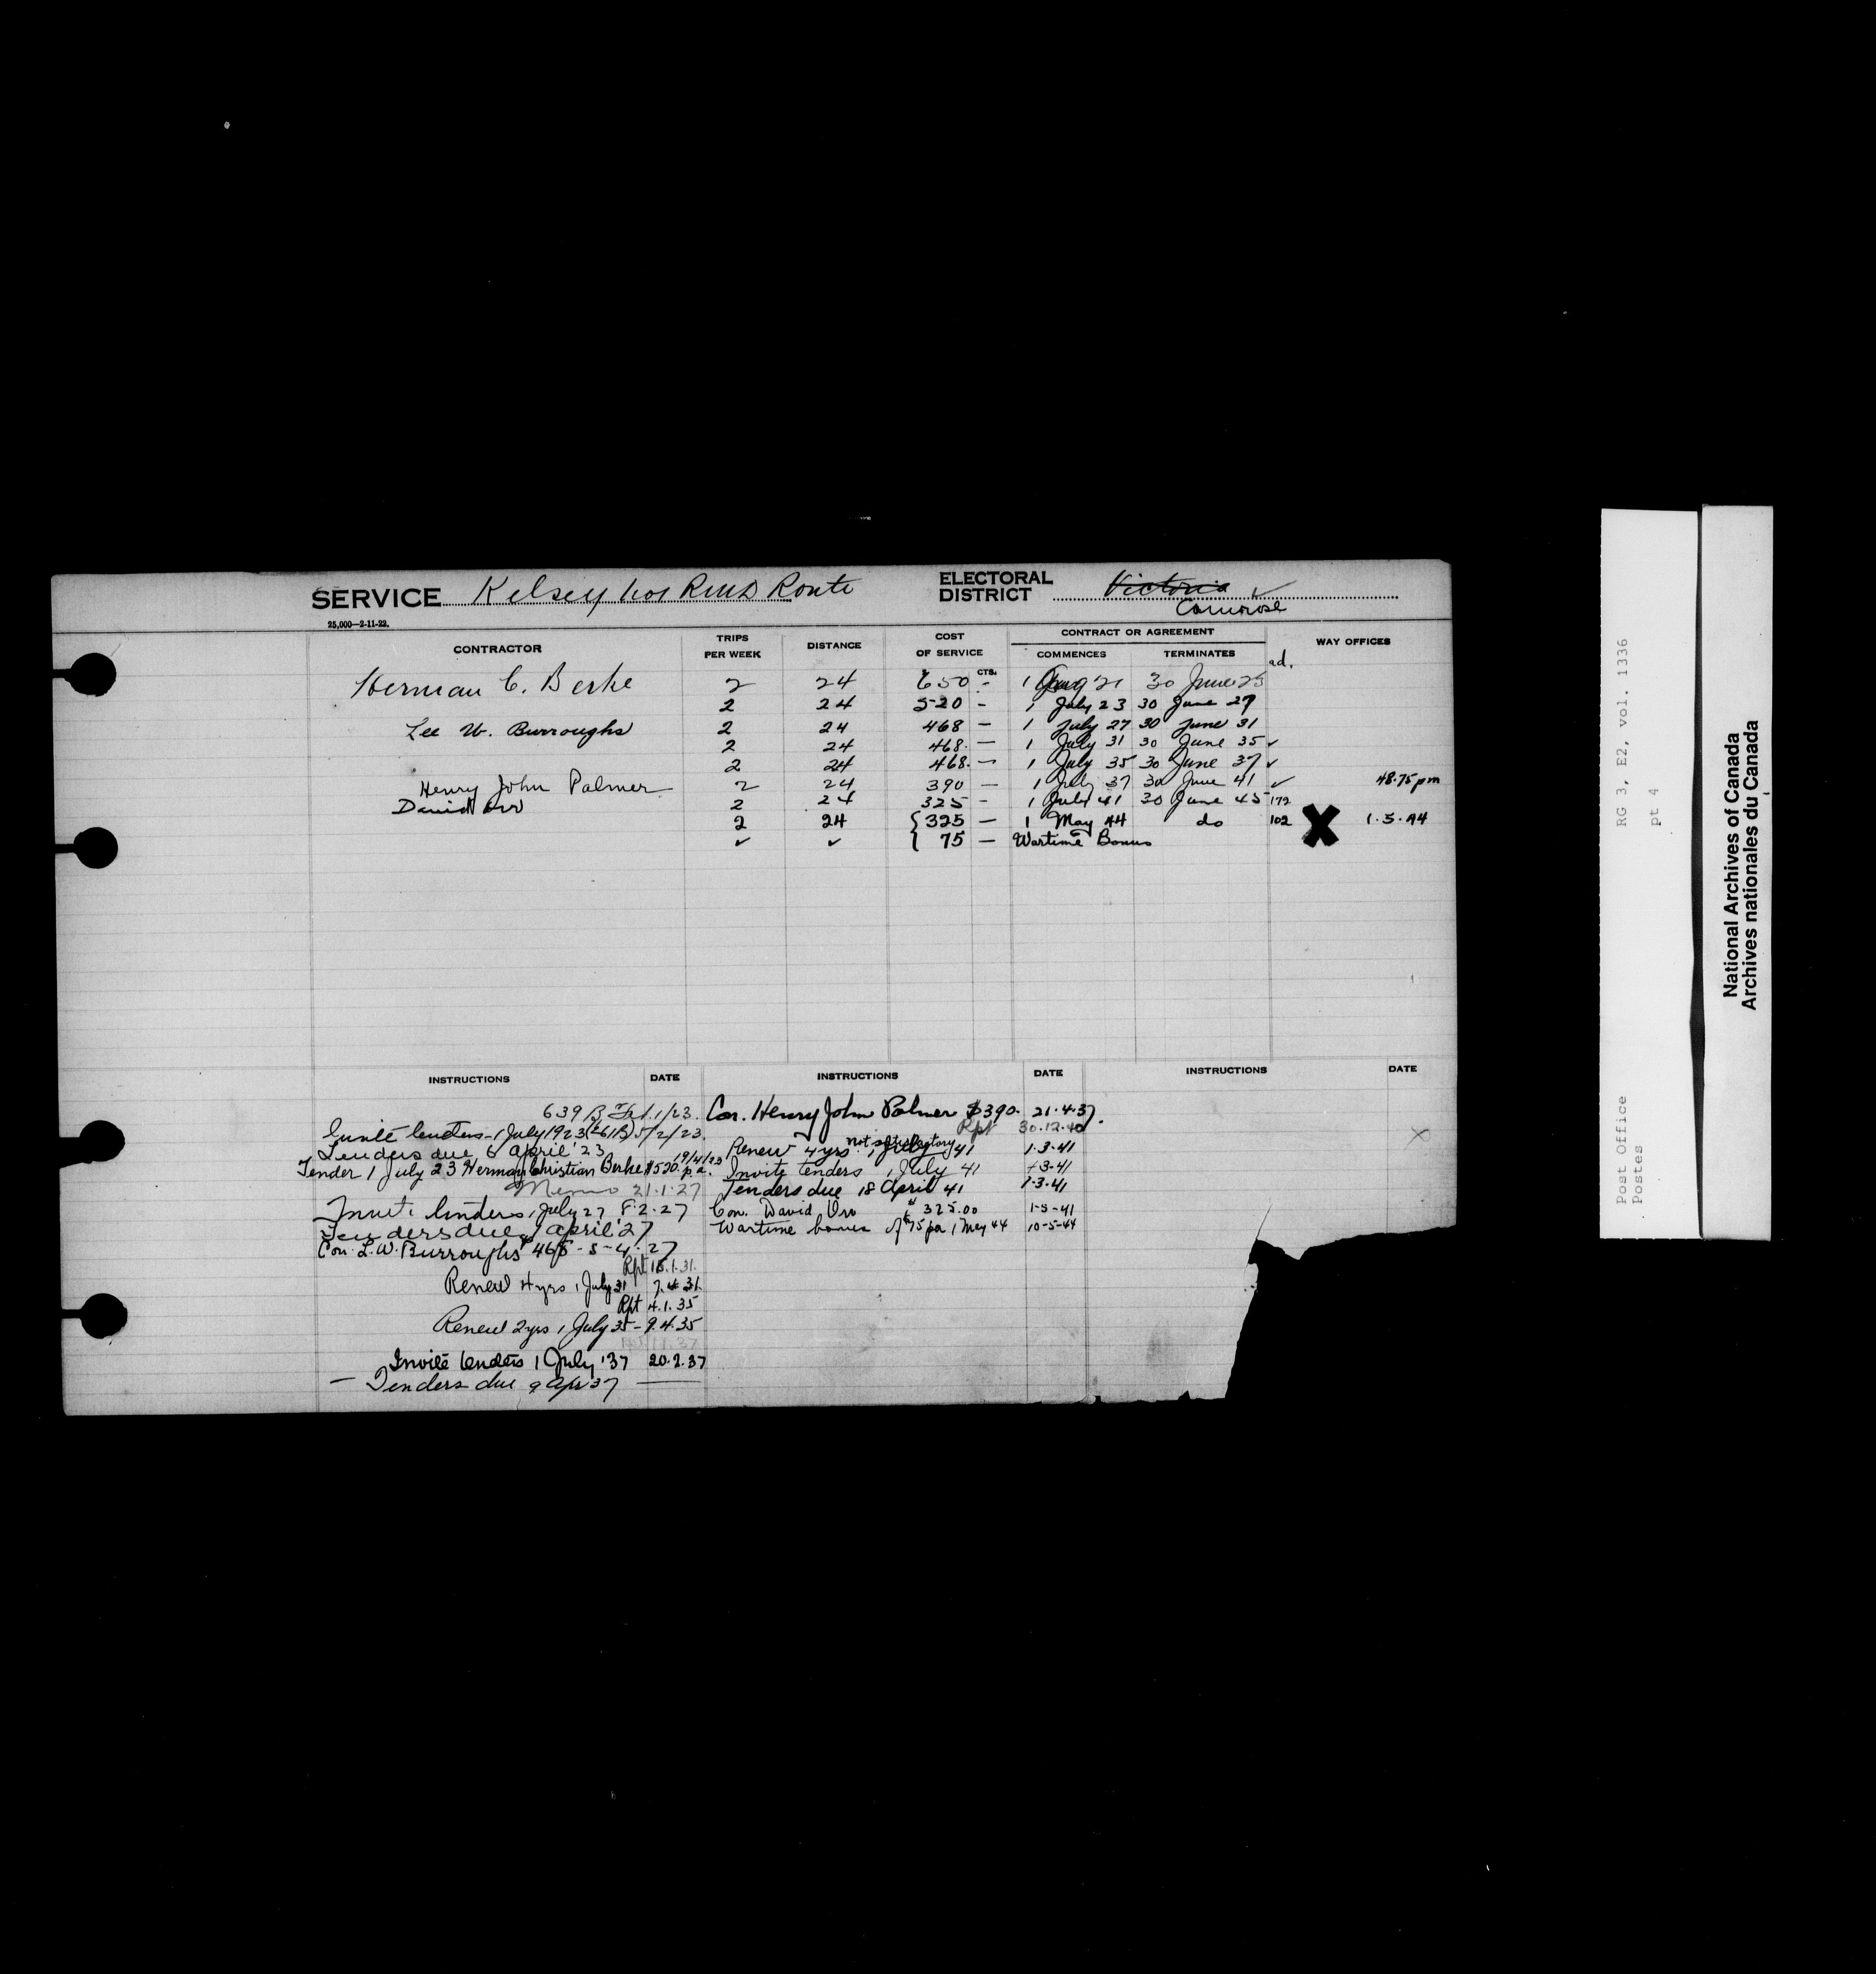 SERVICE Kelsey No1 RMD Route ELECTORAL DISTRICT Victoria ✓
Camrose
25,000—2-11-22.
CONTRACTOR TRIPS PER WEEK DISTANCE COST OF SERVICE CONTRACT OR AGREEMENT COMMENCES TERMINATES WAY OFFICES
CTS. ad.
Herman C. Berke 2 24 650 - 1 Aug 21 30 June 23
2 24 520 - 1 July 23 30 June 27
Lee W. Burroughs 2 24 468 — 1 July 27 30 June 31
2 24 468. — 1 July 31 30 June 35 ✓
2 24 468. — 1 July 35 30 June 37 ✓
Henry John Palmer 2 24 390 — 1 July 37 30 June 41 ✓ 48.75 pm
David Orr 2 24 325 - 1 July 41 30 June 45 172
2 24 {325 — 1 May 44 do 102 X 1.5.44
✓ ✓ { 75 — Wartime Bonus
INSTRUCTIONS DATE
639 B Feb. 1/23.
Invite tenders - 1 July 1923 (261B) 5/2/23.
Tenders due 6 April '23
Tender 1 July 23 Herman Christian Berke $520. p.a. 19/4/23
Memo 21.1.27
Invite tenders 1 July 27 8.2.27
Tenders due April '27
Con. L.W. Burroughs $468 - 5-4.27
Rpt 15.1.31.
Renew 4 yrs 1 July 31 7.4.31.
Rpt 4.1.35
Renew 2 yrs 1 July 35 - 9.4.35
Invite tenders 1 July '37 20.2.37
— Tenders due 9 Apr 37 —
INSTRUCTIONS DATE
Con. Henry John Palmer $390. 21.4.37.
Rpt 30.12.40
not satisfactory
Renew 4 yrs. 1 July 41 1.3.41
Invite tenders 1 July 41 1-3-41
Tenders due 18 April 41 1.3.41
Con. David Orr $325.00 1-5-41
Wartime bonus of $75 pa 1 May 44 10-5-44
INSTRUCTIONS DATE
X
RG 3, E2, vol. 1336
pt 4
Post Office
Postes
National Archives of Canada
Archives nationales du Canada